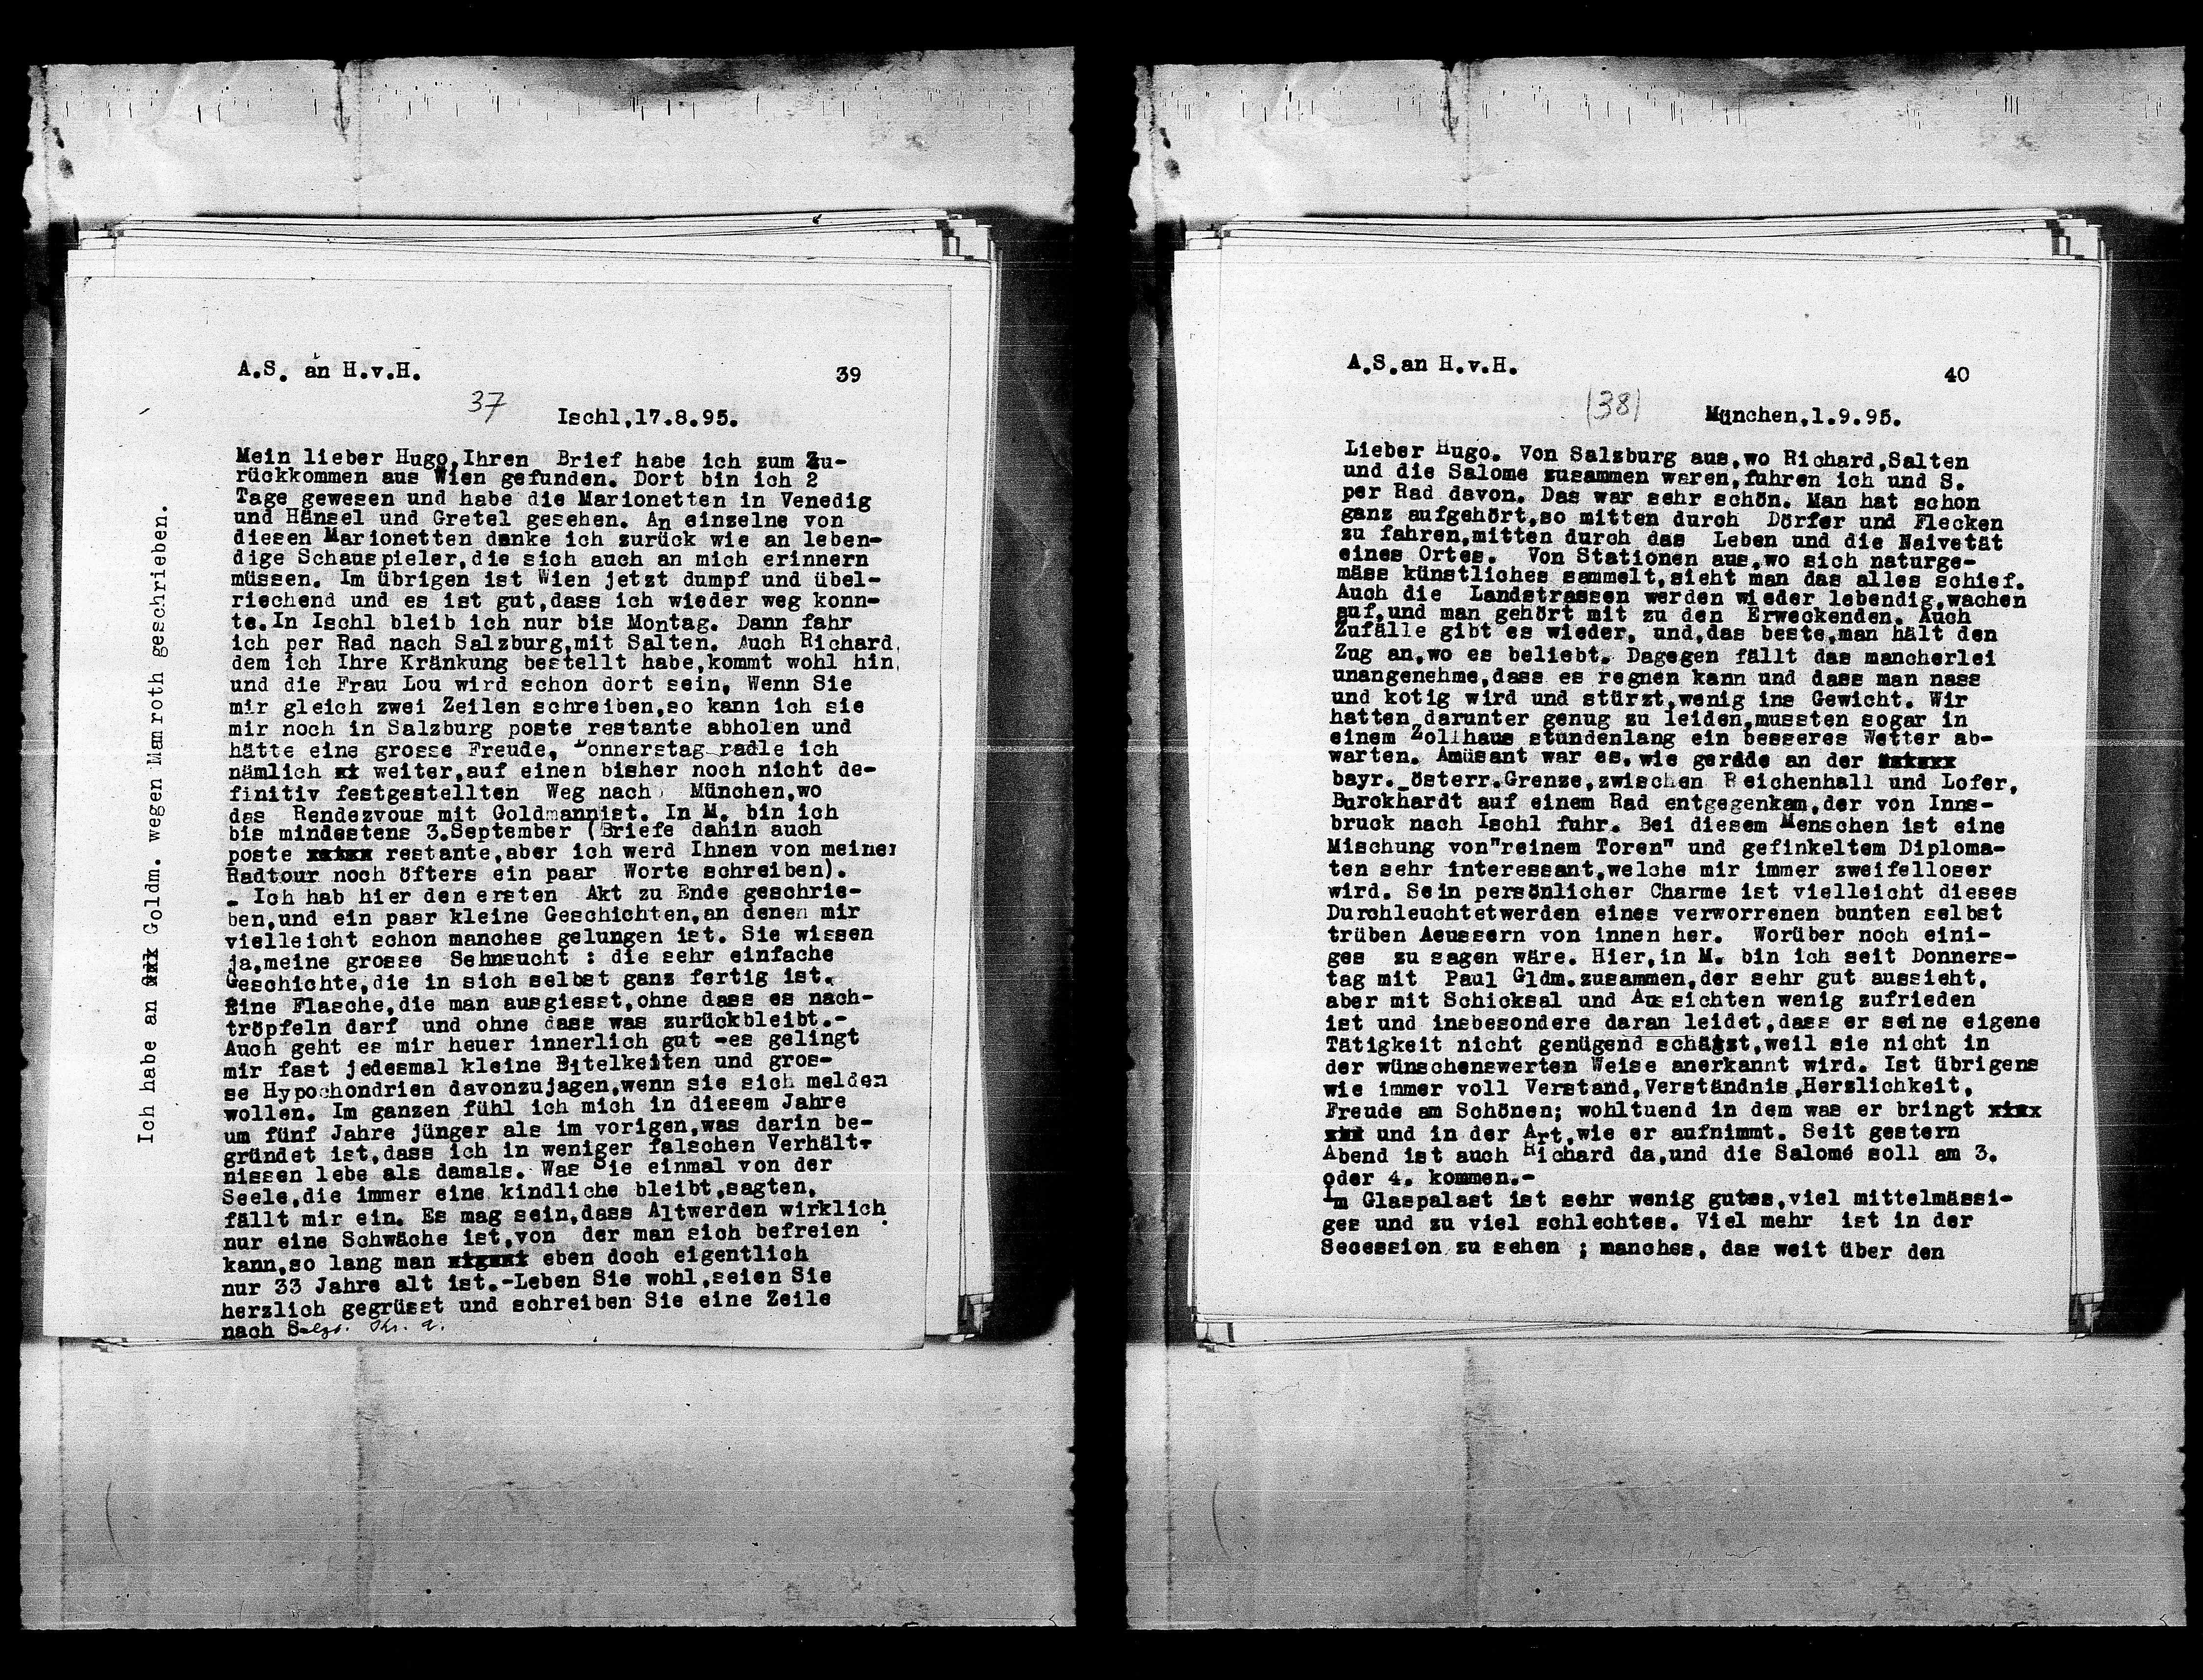 A.S. an H.v.H. 39
37 Ischl,17.8.95.
Mein lieber Hugo,Ihren Brief habe ich zum Zu-
rückkommen aus Wien gefunden. Dort bin ich 2
Tage gewesen und habe die Marionetten in Venedig
und Hänsel und Gretel gesehen. An einzelne von
diesen Marionetten danke ich zurück wie an leben-
dige Schauspieler,die sich auch an mich erinnern
müssen. Im übrigen ist Wien jetzt dumpf und übel-
riechend und es ist gut,dass ich wieder weg konn-
te.In Ischl bleib ich nur bis Montag. Dann fahr
ich per Rad nach Salzburg,mit Salten. Auch Richard,
dem ich Ihre Kränkung bestellt habe,kommt wohl hin,
und die Frau Lou wird schon dort sein, Wenn Sie
mir gleich zwei Zeilen schreiben,so kann ich sie
mir noch in Salzburg poste restante abholen und
hätte eine grosse Freude, Donnerstag radle ich
nämlich weiter,auf einen bisher noch nicht de-
finitiv festgestellten Weg nach München,wo
das Rendezvous mit Goldmannist. In M. bin ich
bis mindestens 3.September (Briefe dahin auch
poste restante,aber ich werd Ihnen von meiner
Radtour noch öfters ein paar Worte schreiben).
- Ich hab hier den ersten Akt zu Ende geschrie-
ben,und ein paar kleine Geschichten,an denen mir
vielleicht schon manches gelungen ist. Sie wissen
ja,meine grosse Sehnsucht : die sehr einfache
Geschichte,die in sich selbst ganz fertig ist.
Eine Flasche,die man ausgiesst,ohne dass es nach-
tröpfeln darf und ohne dass was zurückbleibt.-
Auch geht es mir heuer innerlich gut -es gelingt
mir fast jedesmal kleine Eitelkeiten und gros-
se Hypochondrien davonzujagen,wenn sie sich melden
wollen. Im ganzen fühl ich mich in diesem Jahre
um fünf Jahre jünger als im vorigen,was darin be-
gründet ist,dass ich in weniger falschen Verhält-
nissen lebe als damals. Was Sie einmal von der
Seele,die immer eine kindliche bleibt,sagten,
fällt mir ein. Es mag sein,dass Altwerden wirklich
nur eine Schwäche ist,von der man sich befreien
kann,so lang man eben doch eigentlich
nur 33 Jahre alt ist.-Leben Sie wohl,seien Sie
herzlich gegrüsst und schreiben Sie eine Zeile
nach Salzb.
Ich habe an Goldm. wegen Mamroth geschrieben.
A.S.an H.v.H. 40
(38) München,1.9.95.
Lieber Hugo. Von Salzburg aus,wo Richard,Salten
und die Salome zusammen waren,fuhren ich und S.
per Rad davon. Das war sehr schön. Man hat schon
ganz aufgehört,so mitten durch Dörfer und Flecken
zu fahren,mitten durch das Leben und die Naivetät
eines Ortes. Von Stationen aus,wo sich naturge-
mäss künstliches sammelt,sieht man das alles schief.
Auch die Landstrassen werden wieder lebendig,wachen
auf,und man gehört mit zu den Erweckenden. Auch
Zufälle gibt es wieder, und,das beste,man hält den
Zug an,wo es beliebt. Dagegen fällt das mancherlei
unangenehme,dass es regnen kann und dass man nass
und kotig wird und stürzt,wenig ins Gewicht. Wir
hatten darunter genug zu leiden,mussten sogar in
einem Zollhaus stundenlang ein besseres Wetter ab-
warten. Amüsant war es, wie gerade an der
bayr.-österr.Grenze,zwischen Reichenhall und Lofer,
Burckhardt auf einem Rad entgegenkam,der von Inns-
bruck nach Ischl fuhr. Bei diesem Menschen ist eine
Mischung von"reinem Toren" und gefinkeltem Diploma-
ten sehr interessant,welche mir immer zweifelloser
wird. Sein persönlicher Charme ist vielleicht dieses
Durchleuchtetwerden eines verworrenen bunten selbst
trüben Aeussern von innen her. Worüber noch eini-
ges zu sagen wäre. Hier,in M. bin ich seit Donners-
tag mit Paul Gldm.zusammen,der sehr gut aussieht,
aber mit Schicksal und Aussichten wenig zufrieden
ist und insbesondere daran leidet,dass er seine eigene
Tätigkeit nicht genügend schätzt,weil sie nicht in
der wünschenswerten Weise anerkannt wird. Ist übrigens
wie immer voll Verstand,Verständnis,Herzlichkeit,
Freude am Schönen; wohltuend in dem was er bringt
und in der Art,wie er aufnimmt. Seit gestern
Abend ist auch Richard da,und die Salomé soll am 3.
oder 4. kommen.-
Im Glaspalast ist sehr wenig gutes,viel mittelmässi-
ges und zu viel schlechtes. Viel mehr ist in der
Secession zu sehen ; manches, das weit über den